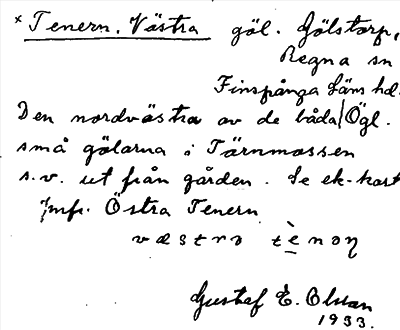 * Tenern, Västra göl. Gölstorp,
Regna sn
Finspånga läns hd.
Den nordvästra av de båda Ögl.
små gölarna i Tärnmossen
s.v. ut från gården. Se ek-kart
Jmfr. Östra Tenern
væstrɑ tènəɳ
Gustaf E. Olsson
1933.